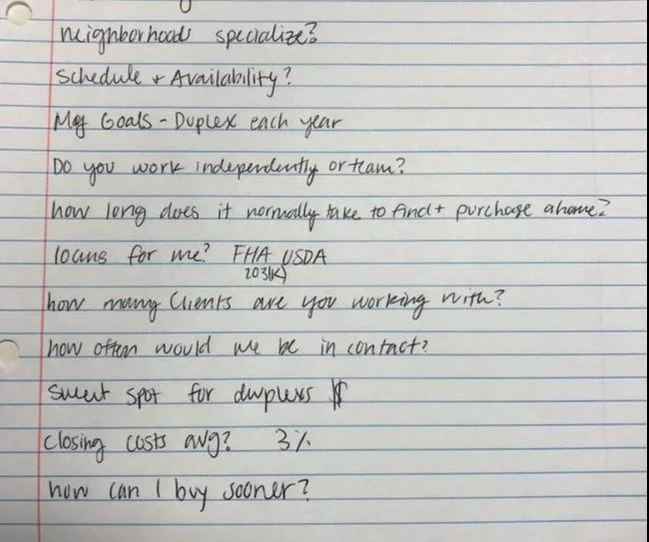 neighborhoods specialize?
Schedule + Availability?
My Goals - Duplex each year
Do you work independently or team?
how long does it normally take to find + purchase a home?
loans for me? FHA USDA
203(K)
how many clients are you working with?
how often would we be in contact?
Sweet spot for duplexs $
Closing costs avg? 3%
how can I buy sooner?